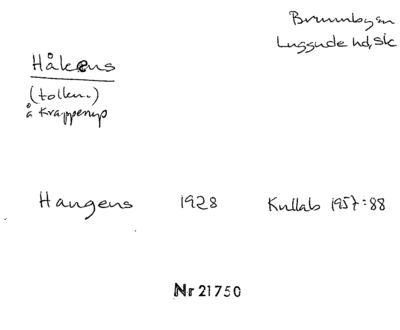 Brunnbyen
Luggude hd, Sk
Håkens
(tolkn.)
å Krapperup
Hangens 1928 Kullab 1957:88
Nr 21750